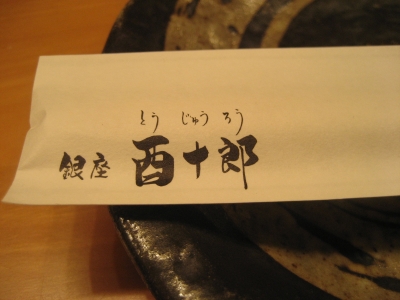 とう じゅう ろう
銀座 酉十郎